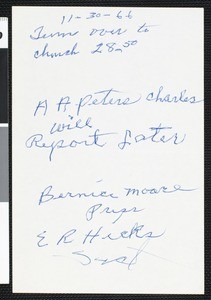 11-30-66
Turn over to
church 28.50
A A Peters Charles
will
Report Later
Bernice Moore
Pres
E R Hicks